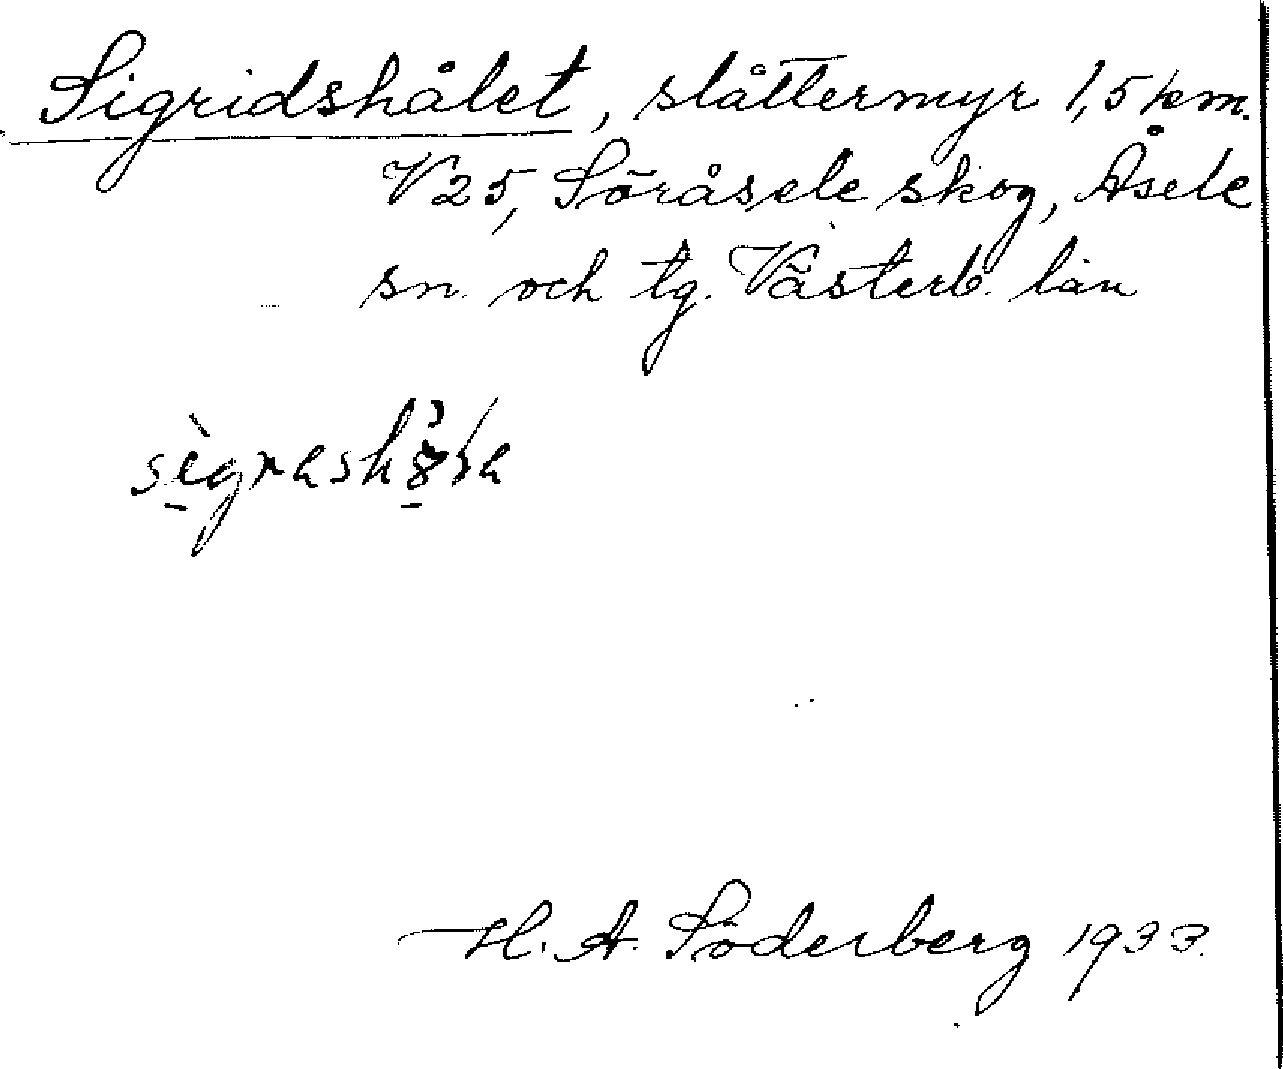 Sigridshålet, slåttermyr 1,5 km.
V 25, Söråsele skog, Åsele
sn. och tg. Västerb. län
H. A. Söderberg 1933.